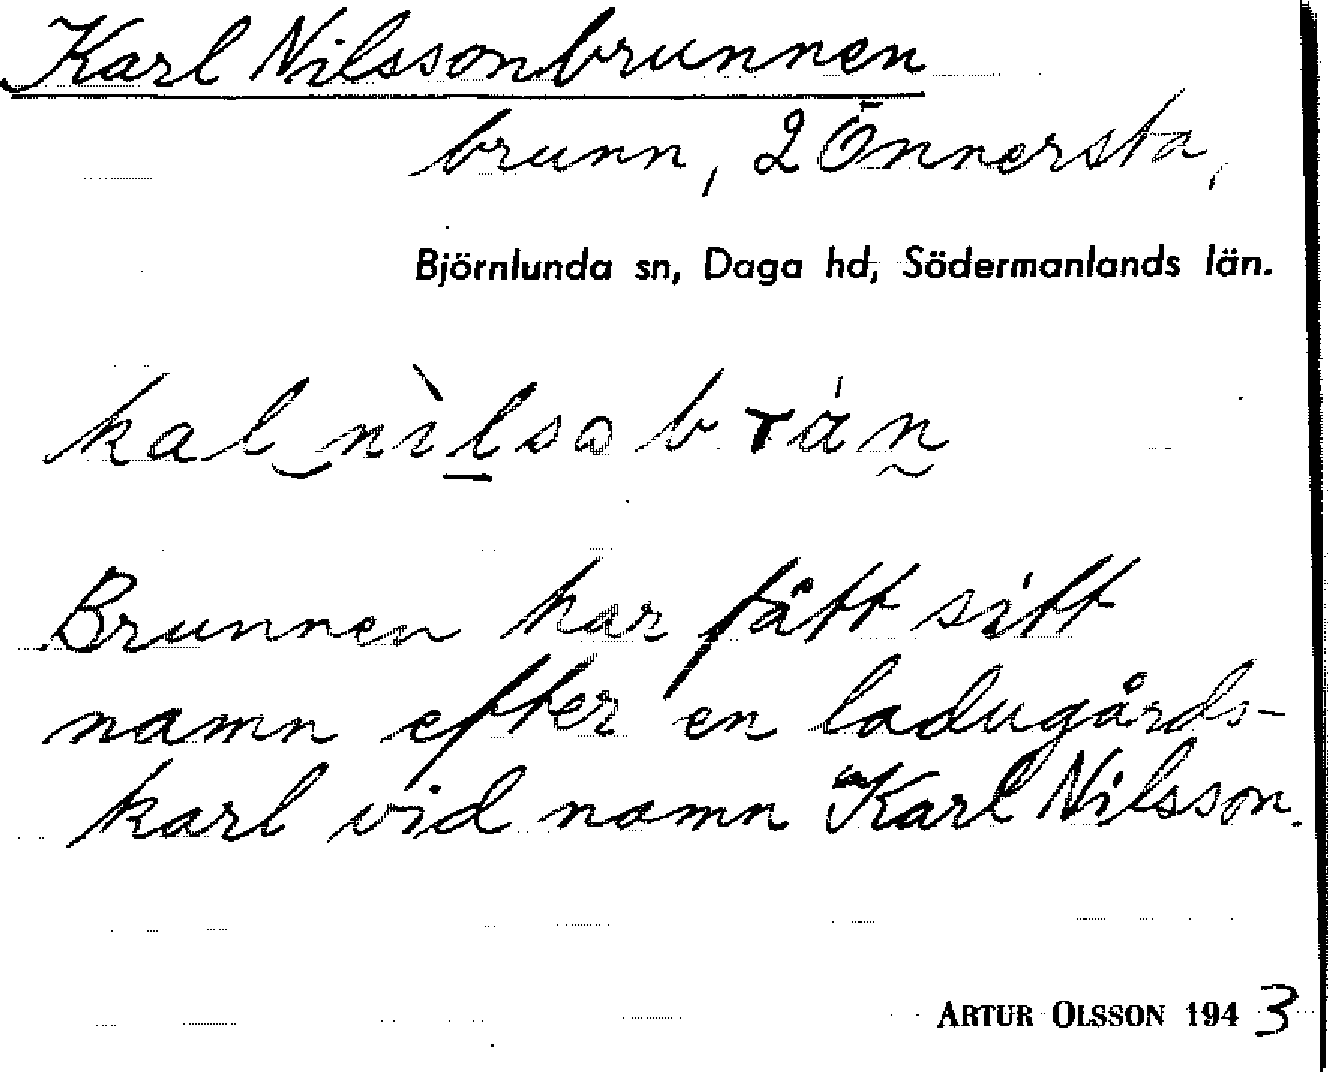 Karl Nilssonbrunnen
brunn, 2 Önnersta,
Björnlunda sn, Daga hd, Södermanlands län.
kal nìlsa brán
Brunnen har fått sitt
namn efter en ladugårds-
karl vid namn Karl Nilsson.
ARTUR OLSSON 1943